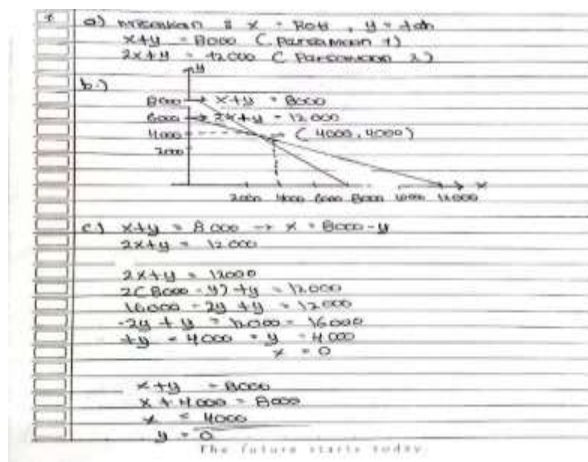 a) misalkan : x = Roti , y = teh
x+y = 8000 ( Persamaan 1)
2x+y = 12000 ( Persamaan 2)
b.)
y
8000 → x+y = 8000
6000 → 2x+y = 12.000
4000 → ( 4000, 4000)
2000
2000 4000 6000 8000 10000 12000 x
c.) x+y = 8000 → x = 8000-y
2x+y = 12000
2x+y = 12000
2(8000 - y) +y = 12.000
16000 - 2y +y = 12000
-2y + y = 12000 - 16000
+y = 4000 = y = 4000
x = 0
x+y = 8000
x + 4000 = 8000
x = 4000
y = 0
The future starts today.